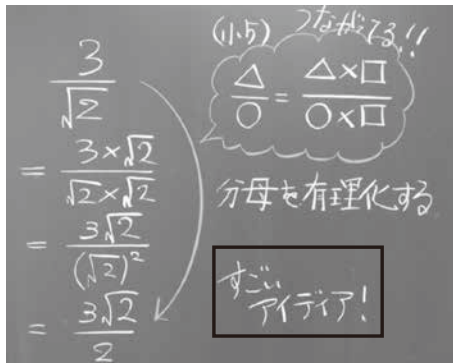 3/√2
= 3×√2/√2×√2
= 3√2/(√2)²
= 3√2/2
(小5) つながってる!!
△/○ = △×□/○×□
分母を有理化する
すごい
アイディア!